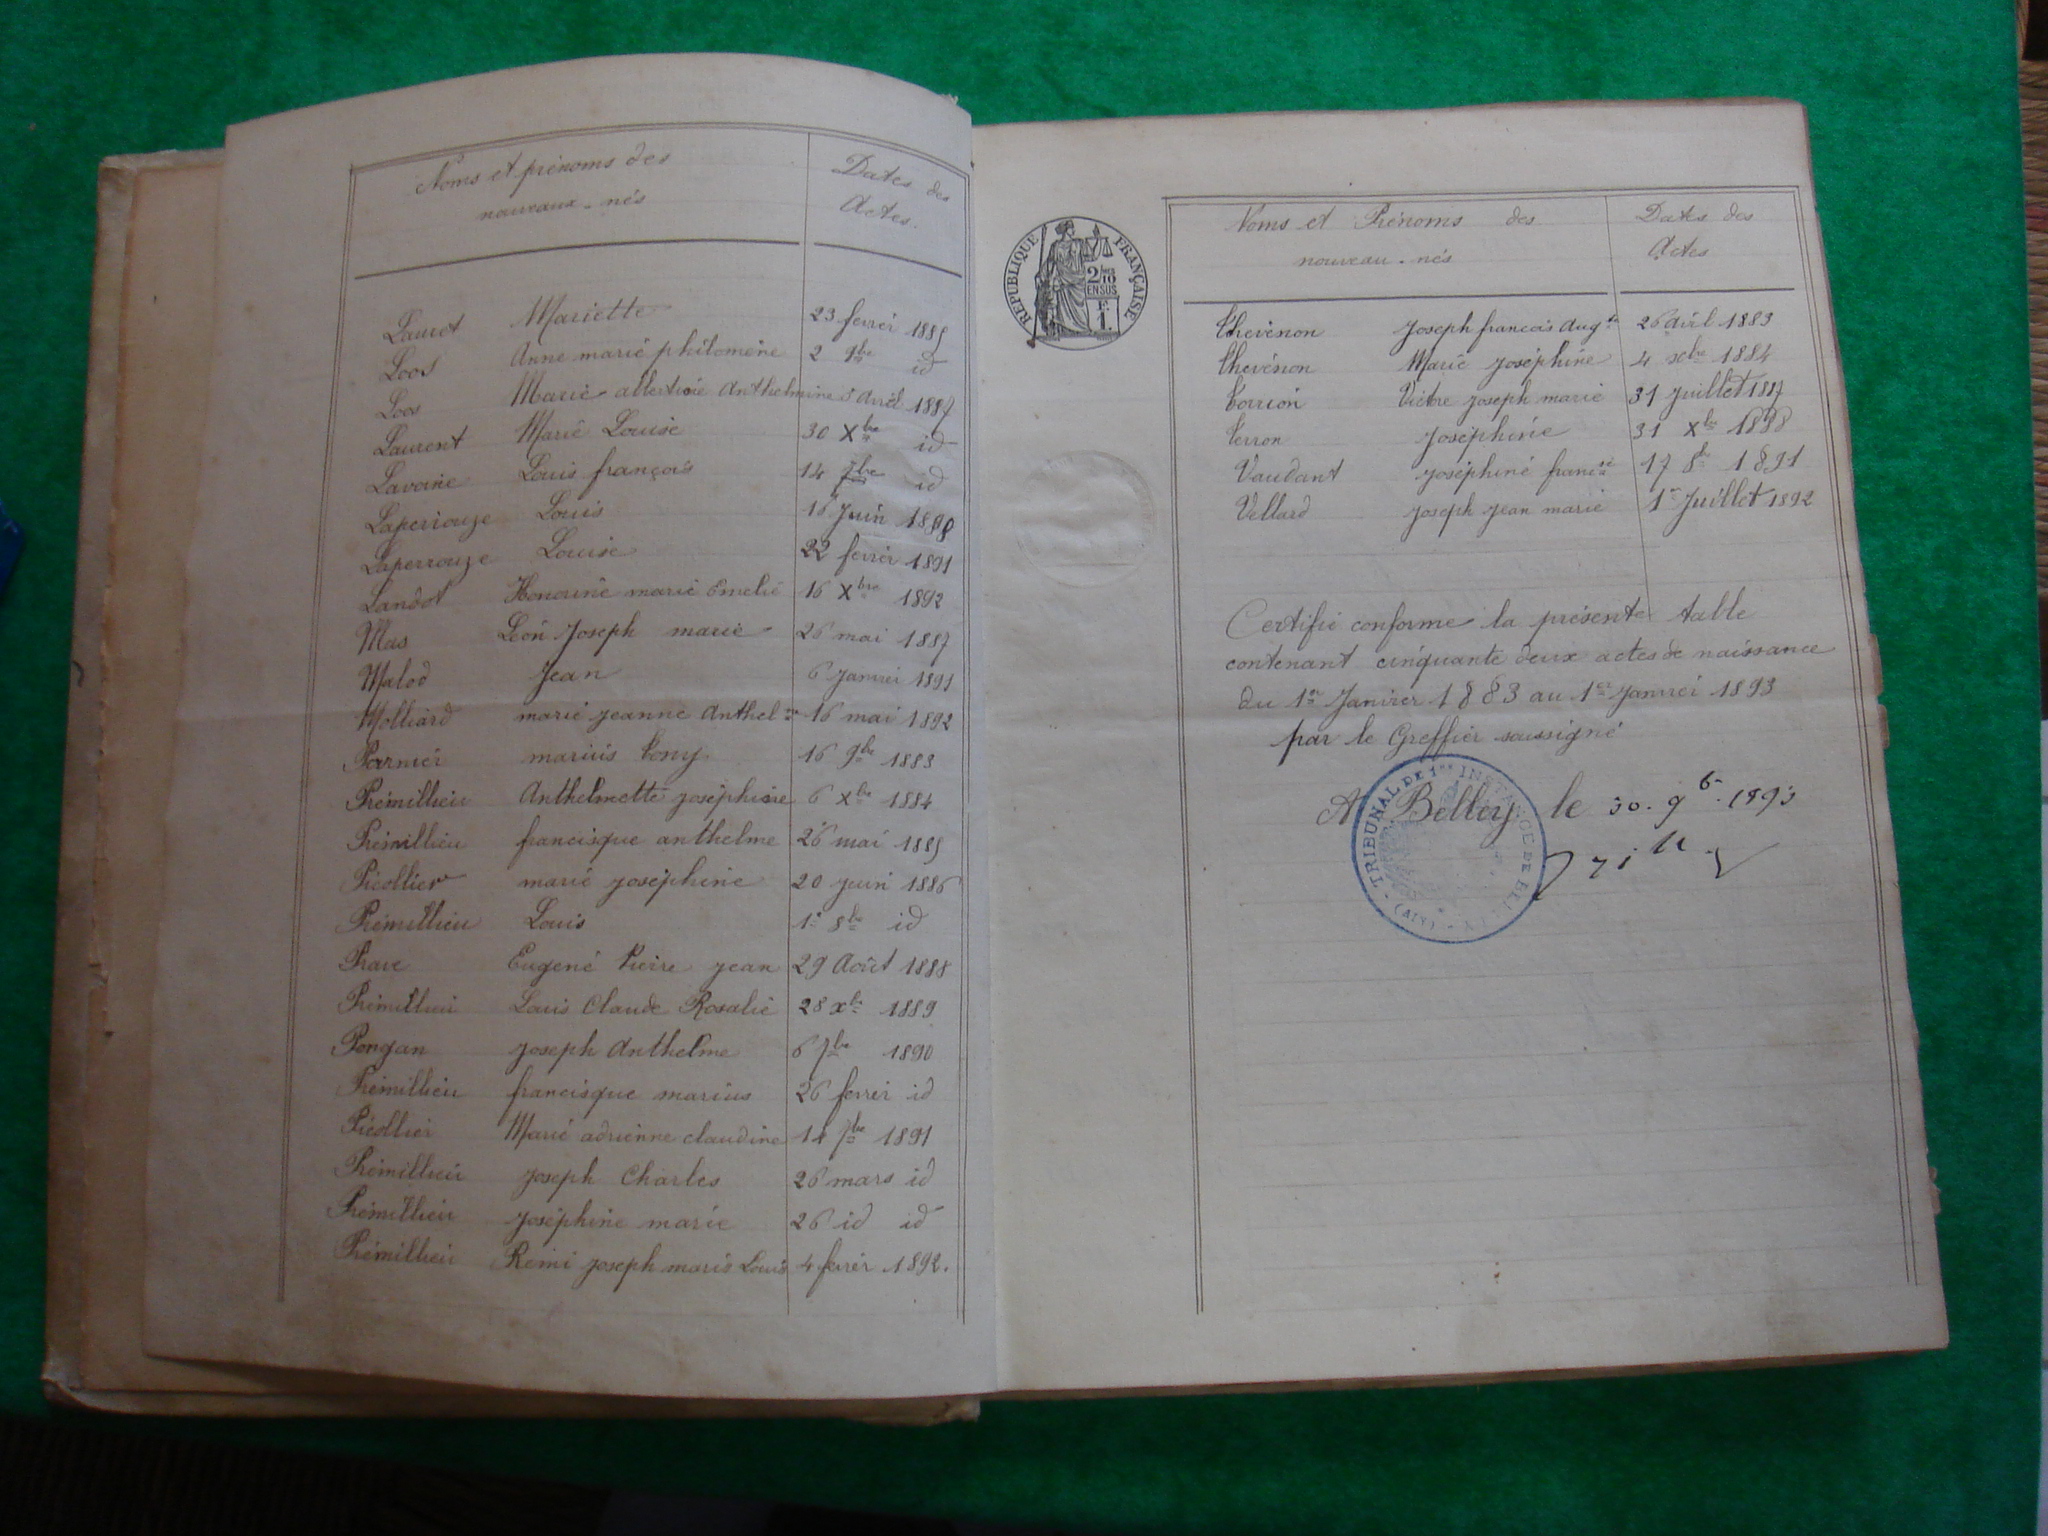 Noms et prénoms des
nouveaux-nés
Dates des
Actes.
Lauret Mariette 23 fevrier 1885
Loos Anne marie philomène 2 9bre id
Loos Marie albertine Anthelmine 5 Avril 1887
Laurent Marie Louise 30 Xbre id
Lavoine Louis françois 14 7bre id
Laperrouze Louis 16 Juin 1888
Laperrouze Louise 22 fevrier 1891
Landot Honorine marie Emelie 16 Xbre 1892
Mas Léon Joseph marie 26 mai 1887
Malod Jean 6 Janvier 1891
Molliard marie jeanne Anthelme 16 mai 1892
Parnier marius Tony 16 9bre 1883
Prémillieu Anthelmette joséphine 6 Xbre 1884
Prémillieu francisque anthelme 26 mai 1885
Picollier marie josephine 20 Juin 1886
Prémillieu Louis 1er 8bre id
Prave Eugené Pierre jean 29 Août 1888
Prémillieu Louis Claude Rosalie 28 xbre 1889
Pongan Joseph Anthelme 6 7bre 1890
Prémillieu francisque marius 26 fevrier id
Picollier Marie adrienne claudine 14 7bre 1891
Prémillieu Joseph Charles 26 mars id
Prémillieu Joséphine marie 26 id id
Prémillieu Rémi joseph marie Louis 4 fevrier 1892.
RÉPUBLIQUE FRANÇAISE
2/10
EN SUS
F.
1.
Noms et Prénoms des
nouveau-nés
Dates des
Actes
Thevenon Joseph francois Augte 26 Avril 1883
Thevenon Marie Joséphine 4 xbre 1884
Torrion Victore Joseph marie 31 Juillet 1887
Terron Joséphine 31 Xbre 1888
Vaudant Joséphine francse 17 8bre 1891
Vellard Joseph Jean marie 1er Juillet 1892
Certifié conforme la présente table
contenant cinquante deux actes de naissance
du 1er Janvier 1883 au 1er janvier 1893
par le Greffier soussigné
A Belley le 30. 9bre. 1893
TRIBUNAL DE 1ère INSTANCE DE BELLEY
(AIN)